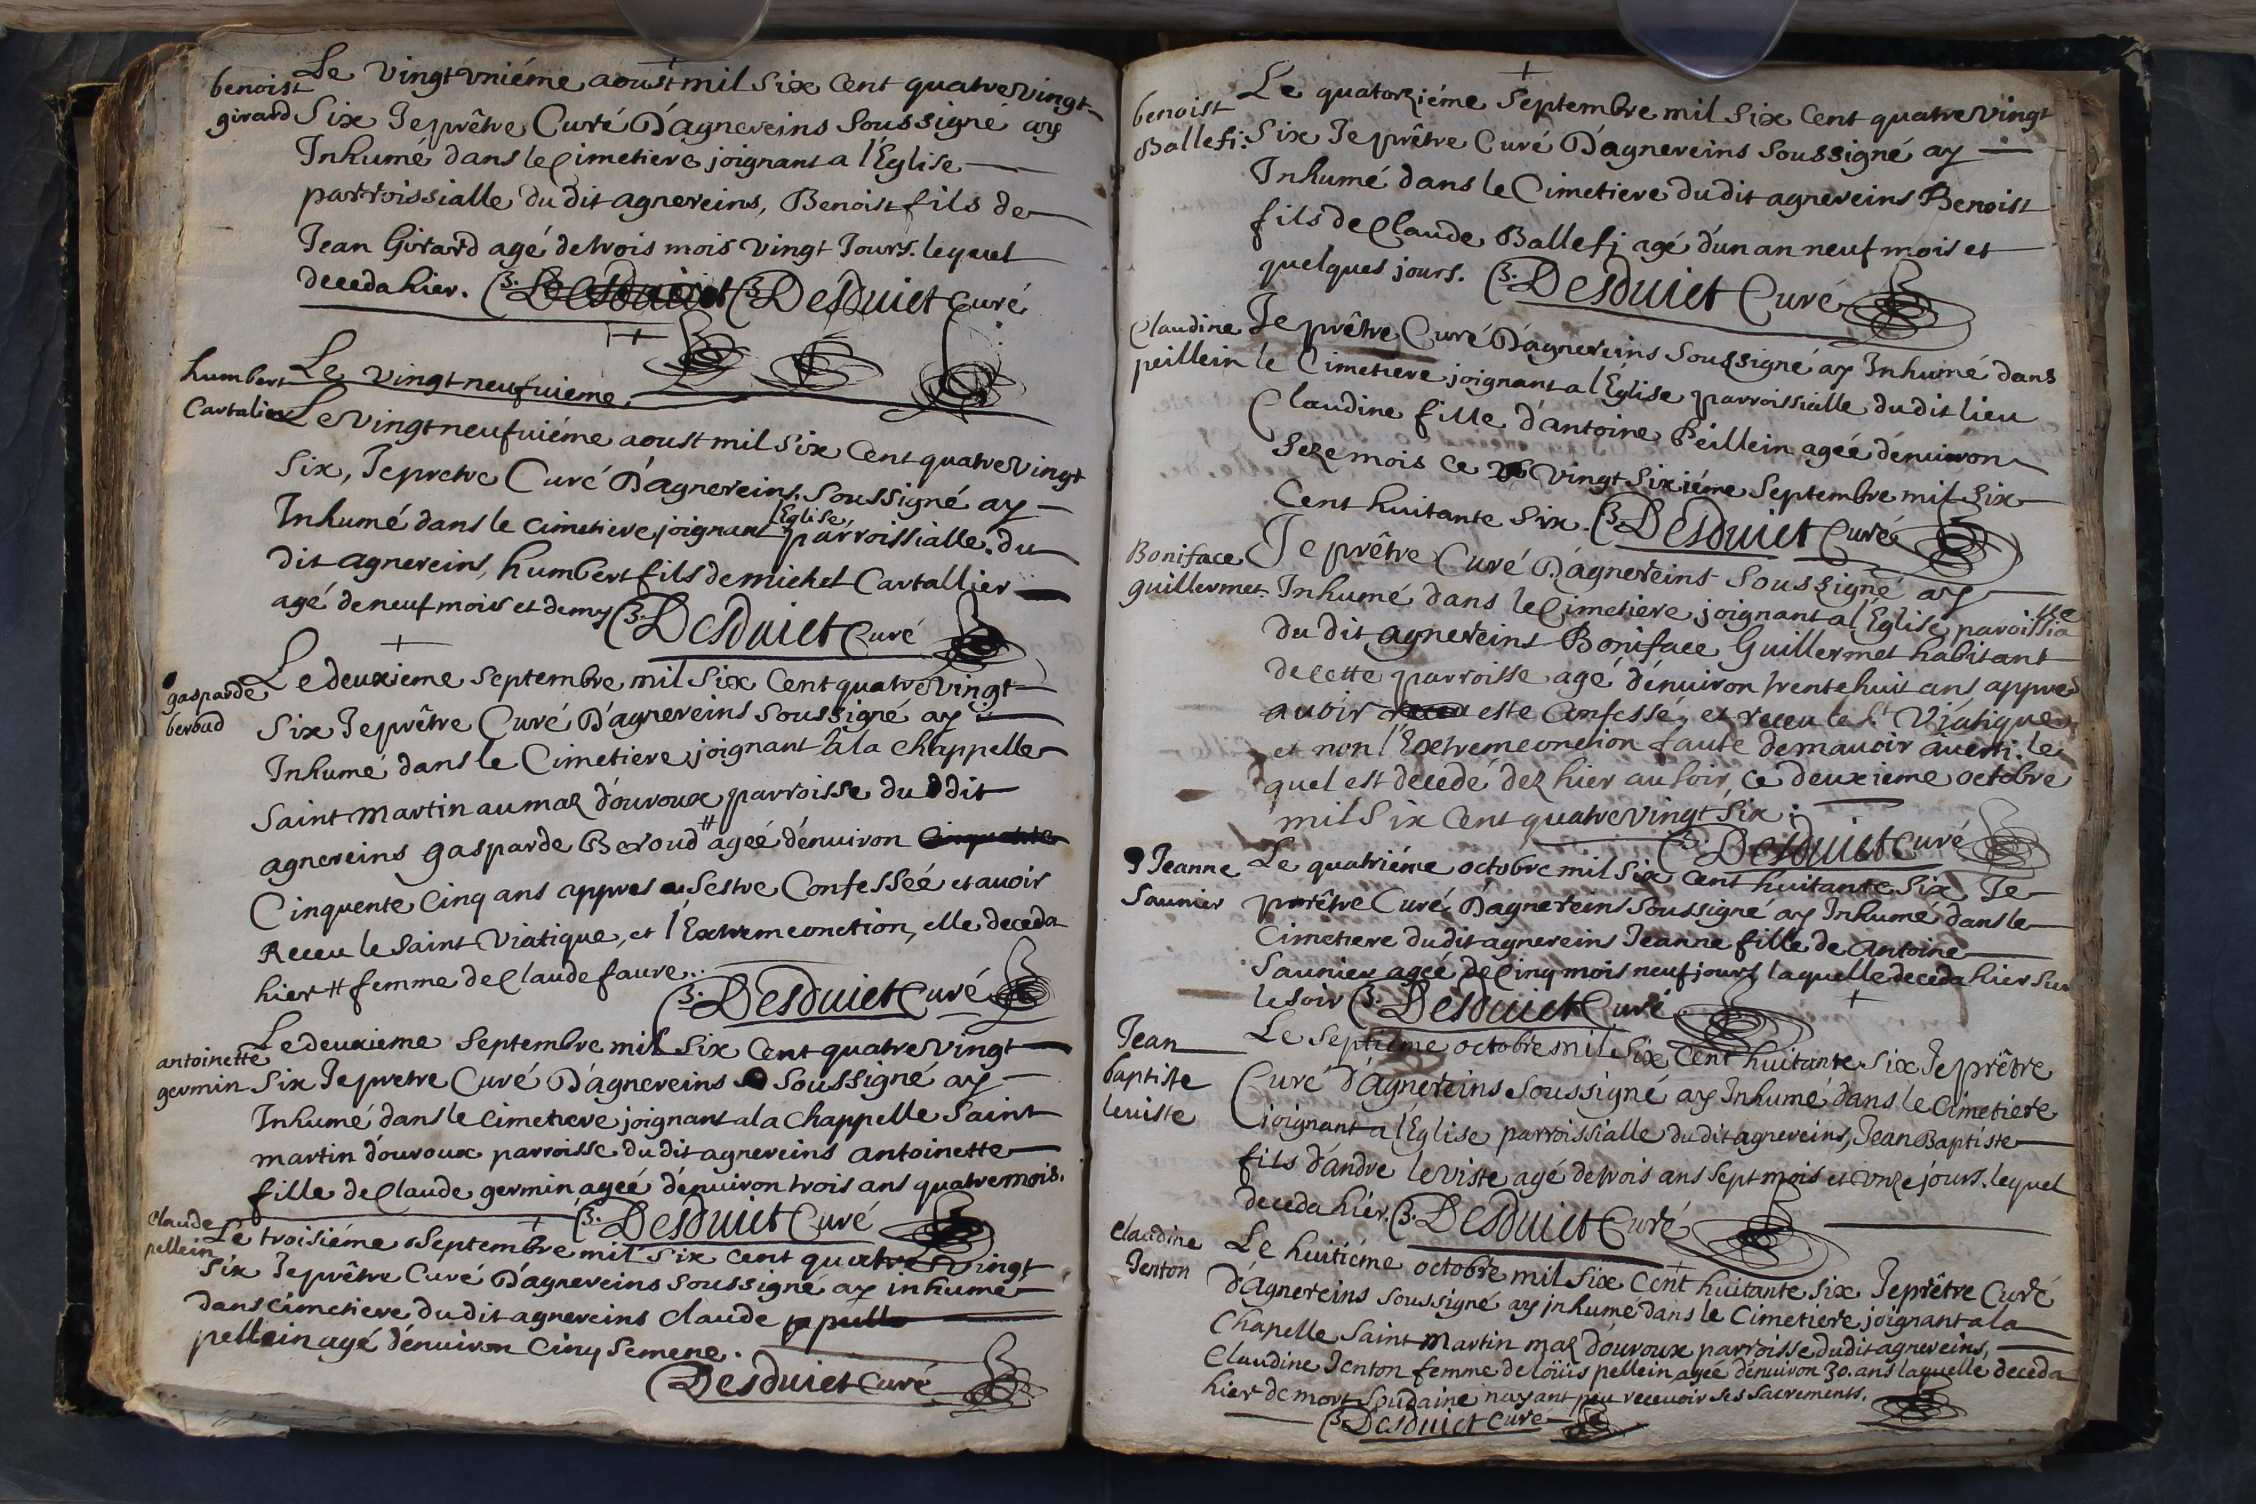 benoist
girard
Le vingt uniéme aoust mil six cent quatre vingt
six Je prêtre Curé D'agnereins soussigné ay
Inhumé dans le Cimetiere joignant a l'Eglise
parroissialle du dit agnereins, Benoist fils de
Jean Girard agé de trois mois vingt Jours. lequel
deceda hier. Desduict Desduict Curé
humbert
Cartalier
Le vingt neufuieme
Le vingt neufuiéme aoust mil six Cent quatre vingt
six, Je pretre Curé D'agnereins. soussigné ay
Inhumé dans le cimetiere joignant l'Eglise parroissialle. du
dit agnereins, humbert fils de michel Cartallier
agé de neuf mois et demy Desduict Curé
gasparde
beroud
Le deuxieme septembre mil six Cent quatre vingt
six Je prêtre Curé D'agnereins soussigné ay
Inhumé dans le Cimetiere joignant a la chappelle
saint martin au maz d'ouroux parroisse du dit
agnereins gasparde Beroud # ageé d'enuiron cinquante
Cinquente Cinq ans appres sestre Confesseé et auoir
Receu le saint Viatique, et l'Extremeonction, elle deceda
hier # femme de Claude faure..
Desduict Curé
antoinette
germin
Le deuxieme septembre mil six Cent quatre vingt
six Je pretre Curé D'agnereins soussigné ay
Inhumé dans le cimetiere joignant a la chappelle saint
martin d'ouroux parroisse du dit agnereins antoinette
fille de Claude germin ageé d'enuiron trois ans quatre mois.
Desduict Curé
claude
pellein
Le troisiéme septembre mil six cent quatre vingt
six Je prêtre Curé D'agnereins soussigné ay inhumé
dans cimetiere du dit agnereins claude
pellein agé d'enuiron Cinq semene.
Desduict Curé
benoist
Ballefi:
Le quatorziéme Septembre mil six Cent quatre vingt
six Je prêtre Curé D'agnereins soussigné ay
Inhumé dans le Cimetiere du dit agnereins Benoist
fils de Claude Ballefj agé d'un an neuf mois et
quelques jours. Desduict Curé
Claudine
peillein
Je prêtre Curé D'agnereins soussigné ay Inhumé dans
le Cimetiere joignant a l'Eglise parroissialle du dit lieu
Claudine fille d'antoine Peillein ageé d'enuiron
seze mois ce vingt sixiéme septembre mil six
Cent huitante six. Desduict Curé
Boniface
guillermet.
Je prêtre Curé D'agnereins soussigné ay
Inhumé dans le Cimetiere joignant a l'Eglise paroissialle
du dit agnereins Boniface Guillermet habitant
de cette parroisse agé d'enuiron trente huit ans appres
auoir esté Confessé, et receu le St Viatique
et non l'Extremeonction faute de m'auoir auerti. le
quel est decedé dez hier au soir, ce deuxieme octobre
mil six Cent quatre vingt six.
Desduict Curé
Jeanne
Saunier
Le quatriéme octobre mil six cent huitante six Je
prêtre Curé D'agnereins soussigné ay Inhumé dans le
Cimetiere du dit agnereins Jeanne fille de Antoine
Saunier ageé de Cinq mois neuf jours laquelle deceda hier sur
le soir Desduict Curé
Jean
baptiste
leuiste
Le septieme octobre mil six Cent huitante six Je prêtre
Curé D'agnereins soussigné ay Inhumé dans le Cimetiere
joignant a l'Eglise parroissialle du dit agnereins, Jean Baptiste
fils d'andre leviste agé de trois ans sept mois et onze jours. lequel
deceda hier. Desduict Curé
claudine
Jenton
Le huitiéme octobre mil six Cent huitante six Je prêtre Curé
d'Agnereins soussigné ay jnhumé dans le Cimetiere joignant a la
Chapelle saint Martin maz d'ouroux parroisse du dit agnereins,
Claudine Jenton femme de loüis pellein ageé d'enuiron 30. ans laquelle deceda
hier de mort soudaine nayant peu receuoir ses sacrements.
Desduict Curé